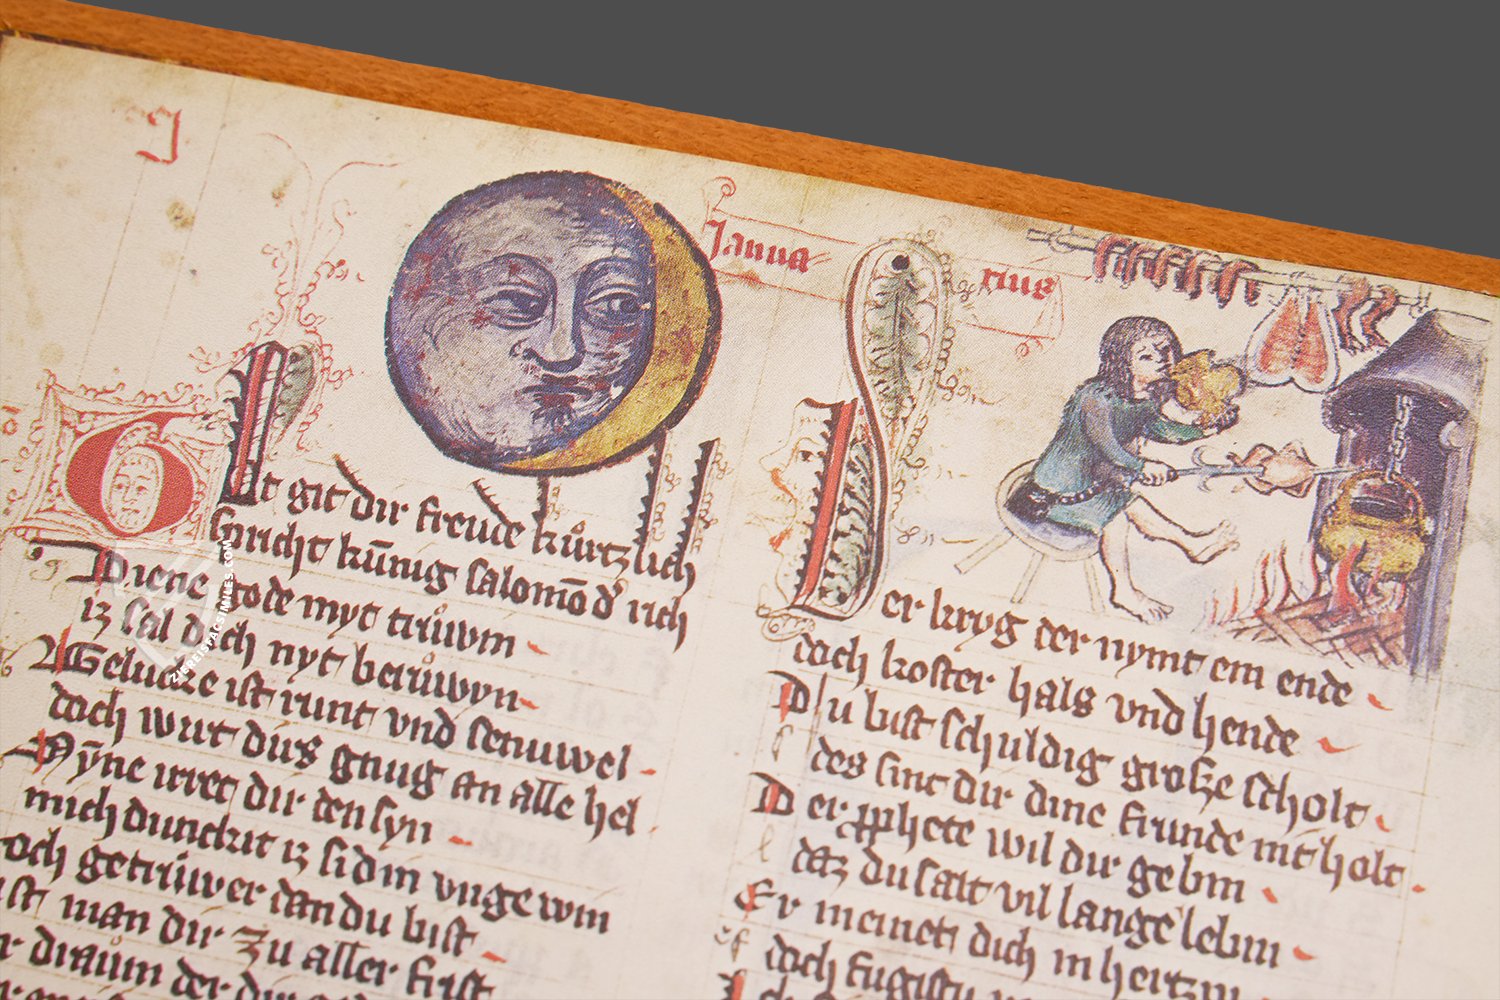 J
Janua rius
Gt git dir freude kůrtzlich
Spricht kunig salomō d' rich
Diene gode myt trůwin
iz sal dich nyt berůwyn
Gelucke ist runt vnd senuwel
doch wirt dirs gnug an alle hel
Mÿne irret dir den syn
mich dunckit iz sid in vngewin
och getrůwer dan du bist
ist man dir zu aller frist
draům der
er kryg der nymt ein ende
doch koster hals vnd hende
Du bist schuldig große scholt
des sint dir dine frunde nit holt
Der pphete wil dir gebin
daz du salt vil lange lebin
Er meinet dich in hertzin
doch
ZIEREISFACSIMILES.COM